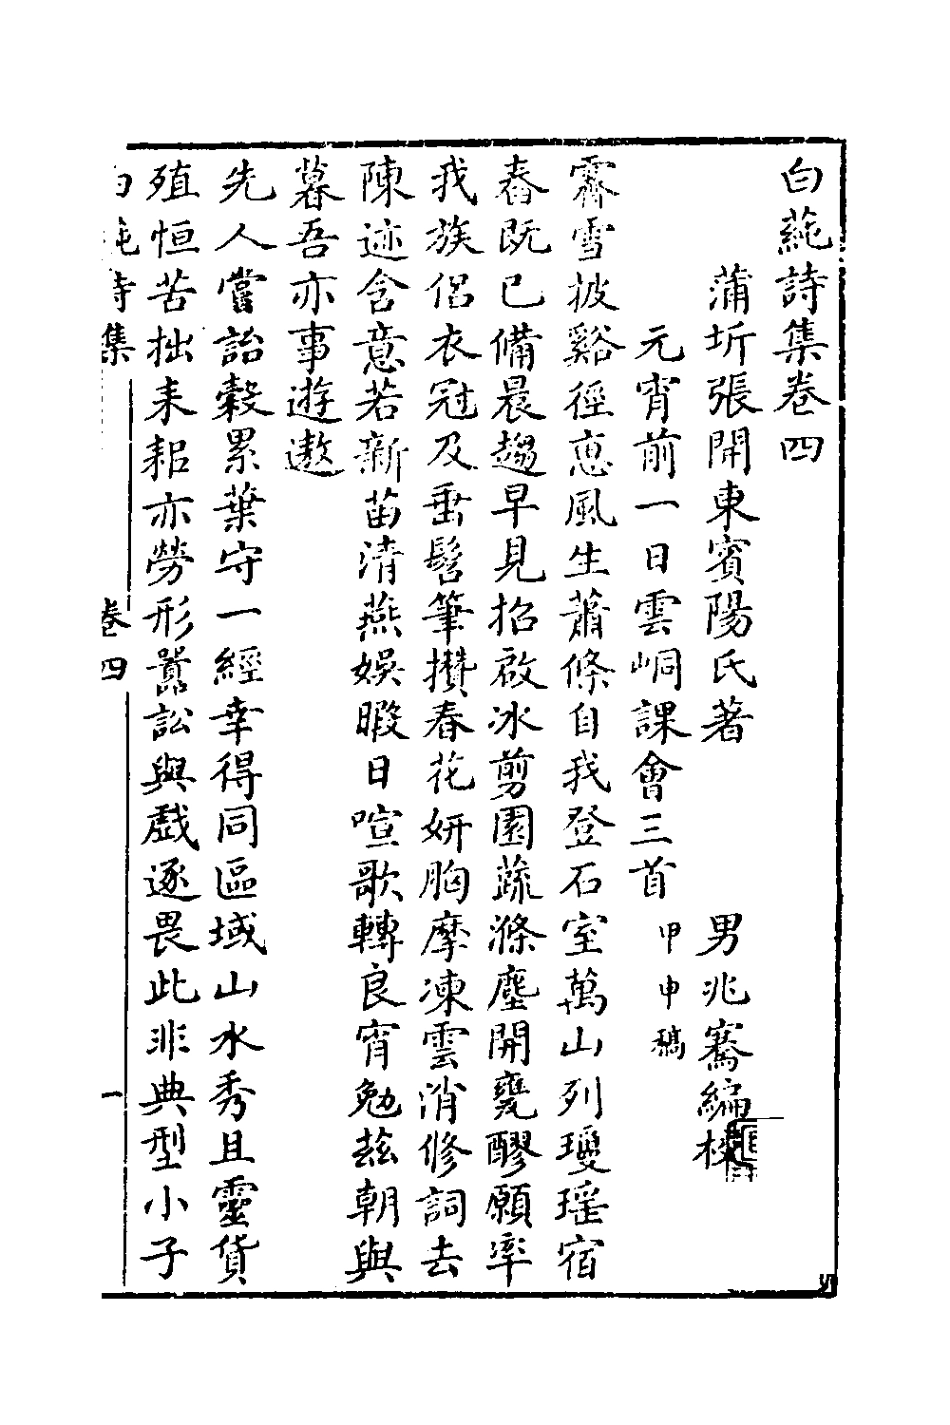 白蒓詩集卷四
蒲圻張開東賓陽氏著　男兆騫編校
元宵前一日雲峒課會三首　甲申稿
霽雪披谿徑恵風生蕭條自我登石室萬山列瓊瑤宿
舂既已備晨趨早見招啟冰剪園蔬滌塵開甕醪願率
我族侶衣冠及垂髫筆攢春花妍胸摩凍雲消修詞去
陳迹含意若新苗清燕娛暇日喧歌轉良宵勉兹朝與
暮吾亦事遊遨
先人嘗詒穀累葉守一經幸得同區域山水秀且靈貨
殖恒苦拙耒耜亦勞形囂訟與戲逐畏此非典型小子
白蒓詩集　卷四　一